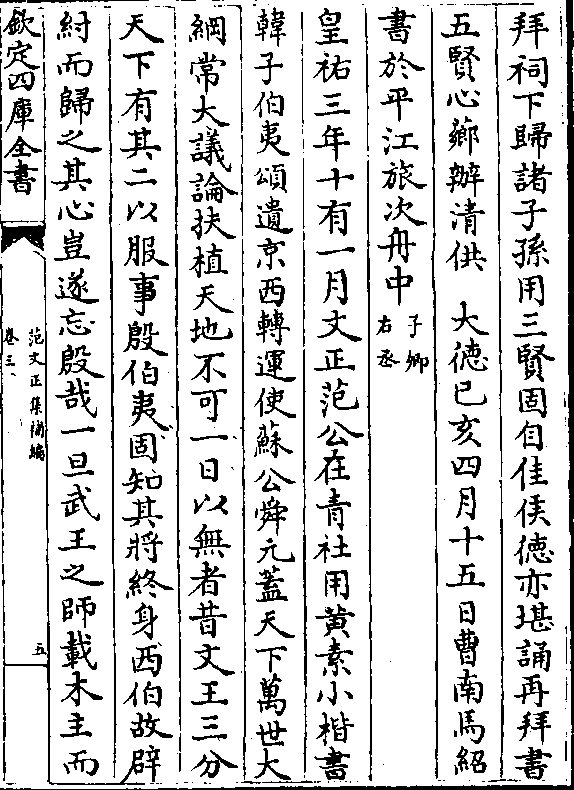 拜祠下歸諸子孫用三賢固自佳侯德亦堪誦再拜書
五賢心薌辦清供　大德己亥四月十五日曹南馬紹
書於平江旅次舟中子卿右丞
皇祐三年十有一月文正范公在青社用黄素小楷書
韓子伯夷頌遺京西轉運使蘇公舜元蓋天下萬世大
綱常大議論扶植天地不可一日以無者昔文王三分
天下有其二以服事殷伯夷固知其將終身西伯故辟
紂而歸之其心豈遂忘殷哉一旦武王之師載木主而
欽定四庫全書
范文正集補編
卷三
五